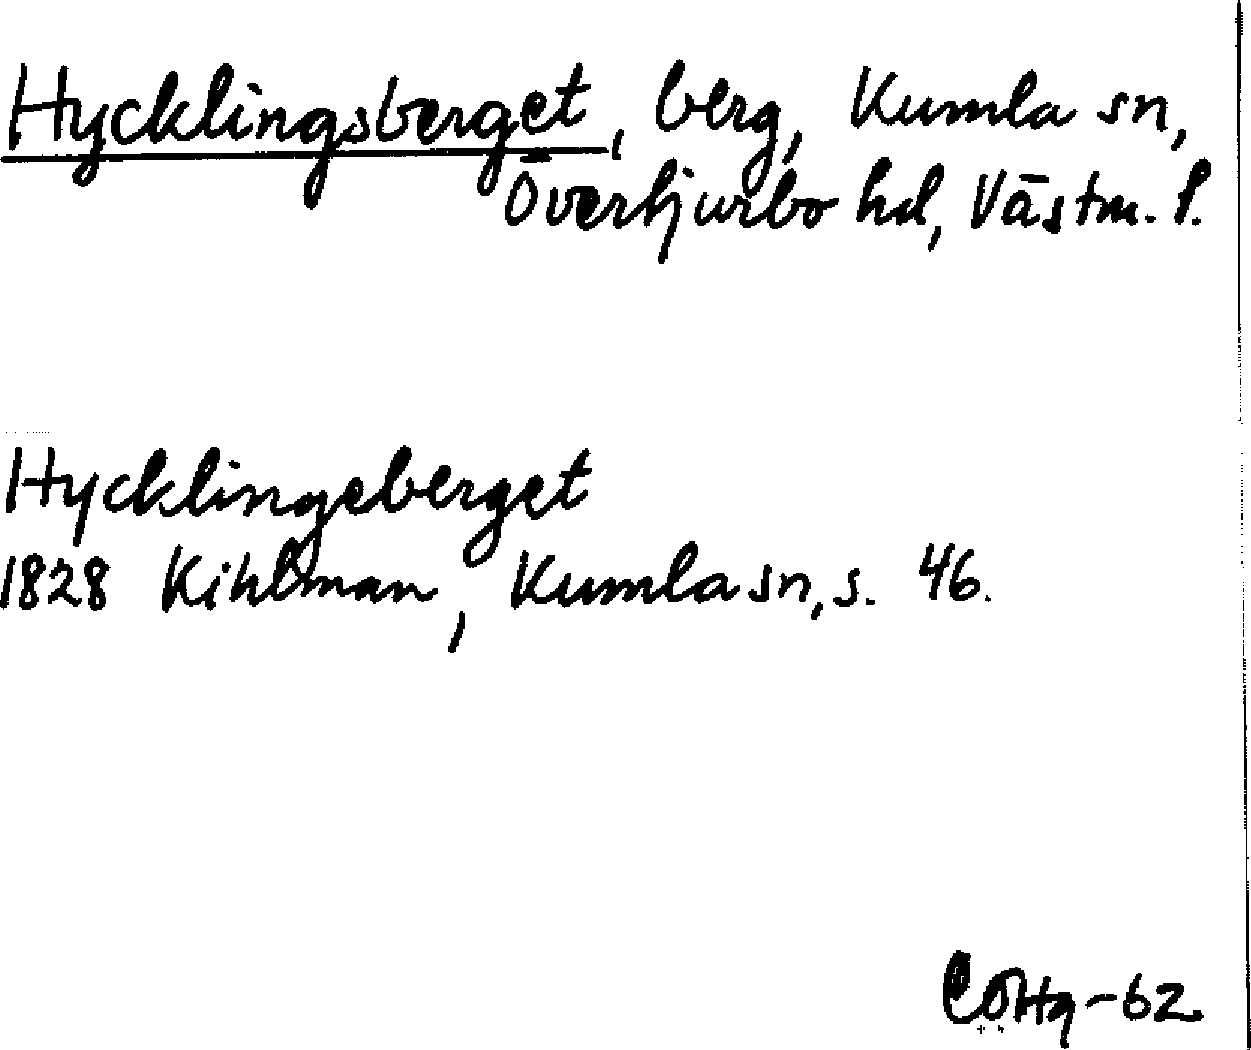 Hycklingsberget, berg, Kumla sn,
Övertjurbo hd, Västm. l.
Hycklingeberget
1828 Kihlman, Kumla sn, s. 46.